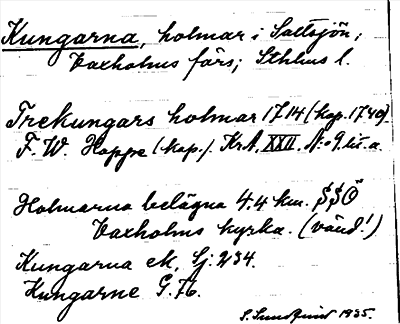 Kungarna, holmar i Saltsjön,
Vaxholms förs; Sthlms l.
Trekungars holmar 1714 (kop. 1740).
F. W. Hoppe (kop.). KrA. XXII. N:o 9. lit. a.
Holmarna belägna 4.4 km. SSÖ
Vaxholms kyrka. (vänd!)
Kungarna ek, Sj. 234.
Kungarne G. 76.
S. Lundquist 1935.